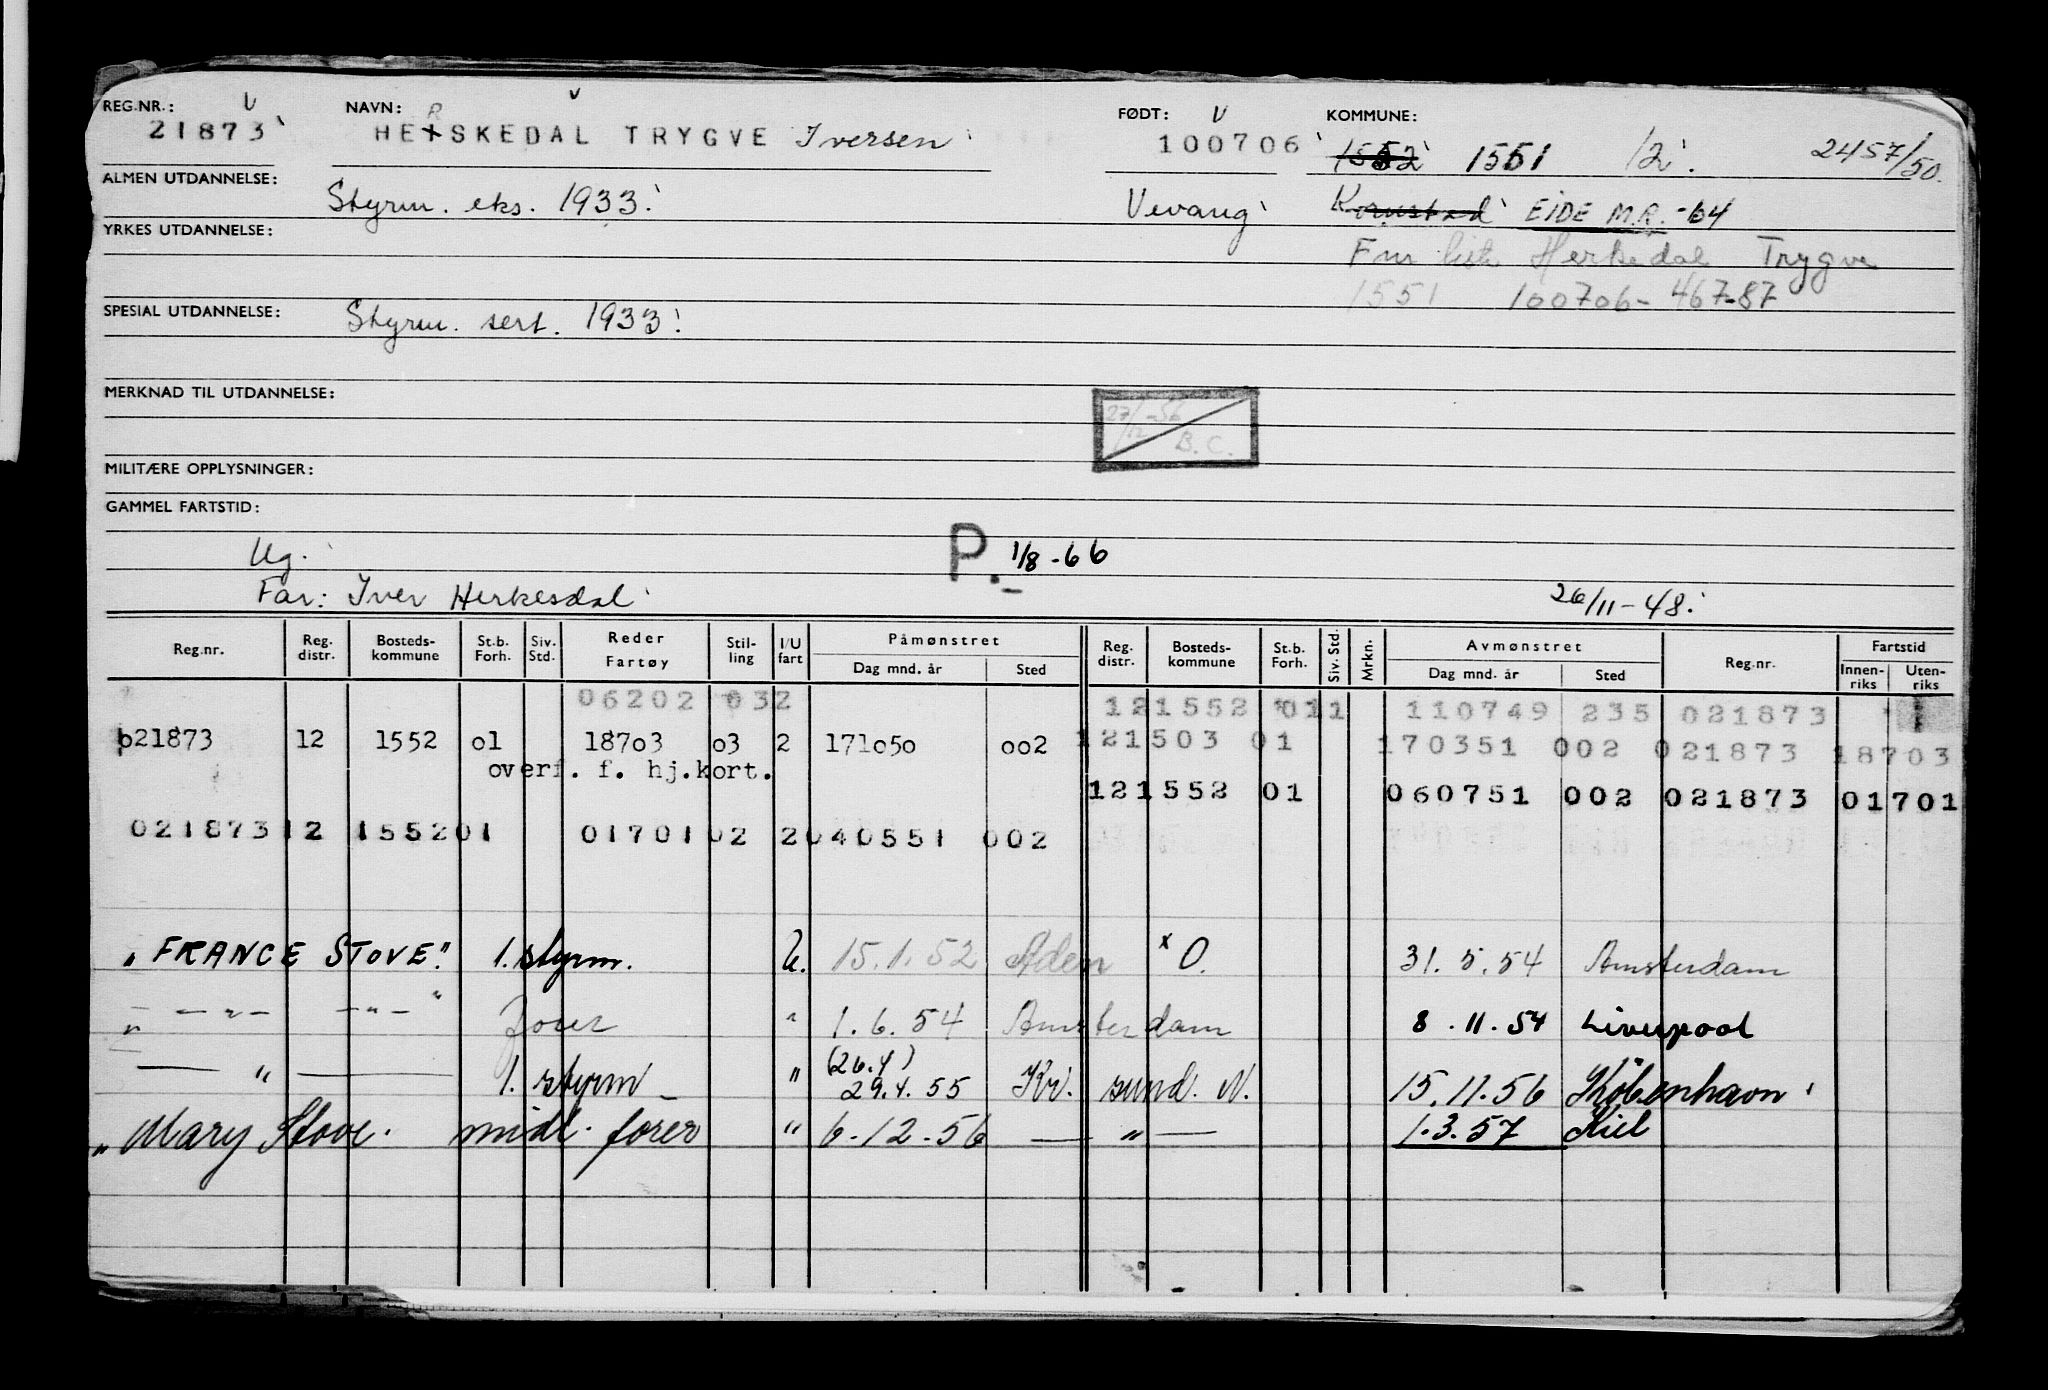 REG.NR.: V NAVN: V FØDT: V KOMMUNE:
21873 HERSKEDAL TRYGVE Iversen 100706 1552 1551 12. 2457/50.
ALMEN UTDANNELSE: Styrm. eks. 1933. Vevang Kornstad EIDE M.R. -64
YRKES UTDANNELSE: Fnr liste Herkedal Trygve
1551 100706- 467-87
SPESIAL UTDANNELSE: Styrm. sert. 1933.
MERKNAD TIL UTDANNELSE:
27/12-56 B.C.
MILITÆRE OPPLYSNINGER:
GAMMEL FARTSTID:
Ug. P. 1/8-66
Far: Iver Herkesdal 26/11-48.
Reg.nr. Reg. distr. Bosteds-kommune St.b. Forh. Siv. Std. Reder Fartøy Stil-ling I/U fart Påmønstret Dag mnd. år Sted Reg. distr. Bosteds-kommune St.b. Forh. Siv. Std. Mrkn. Avmønstret Dag mnd. år Sted Reg.nr. Fartstid Innen-riks Uten-riks
06202 032 121552 011 110749 235 021873
021873 12 1552 01 18703 03 2 171050 002 121503 01 170351 002 021873 18703
overf. f. hj.kort.
121552 01 060751 002 021873 01701
021873 12 1552 01 01701 02 2 040551 002
"FRANCE STOVE" 1. styrm. U. 15.1.52 Aden x O. 31.5.54 Amsterdam
" — " — — " — " fører " 1.6.54 Amsterdam 8.11.54 Liverpool
— " — 1. styrm " (26.4) 29.4.55 Kr. sund. N. 15.11.56 København
"Mary Stove. midl. fører " 6.12.56 — " — 1.3.57 Kiel